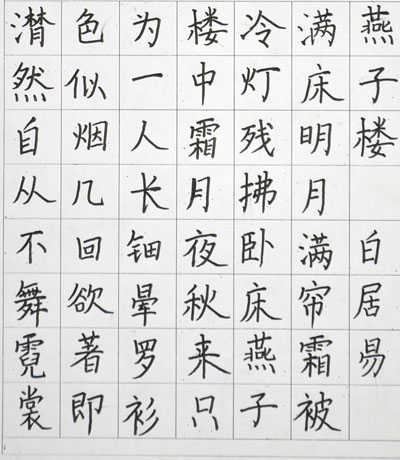 燕子楼 白居易
满床明月满帘霜被
冷灯残拂卧床燕子
楼中霜月夜秋来只
为一人长钿晕罗衫
色似烟几回欲著即
潸然自从不舞霓裳